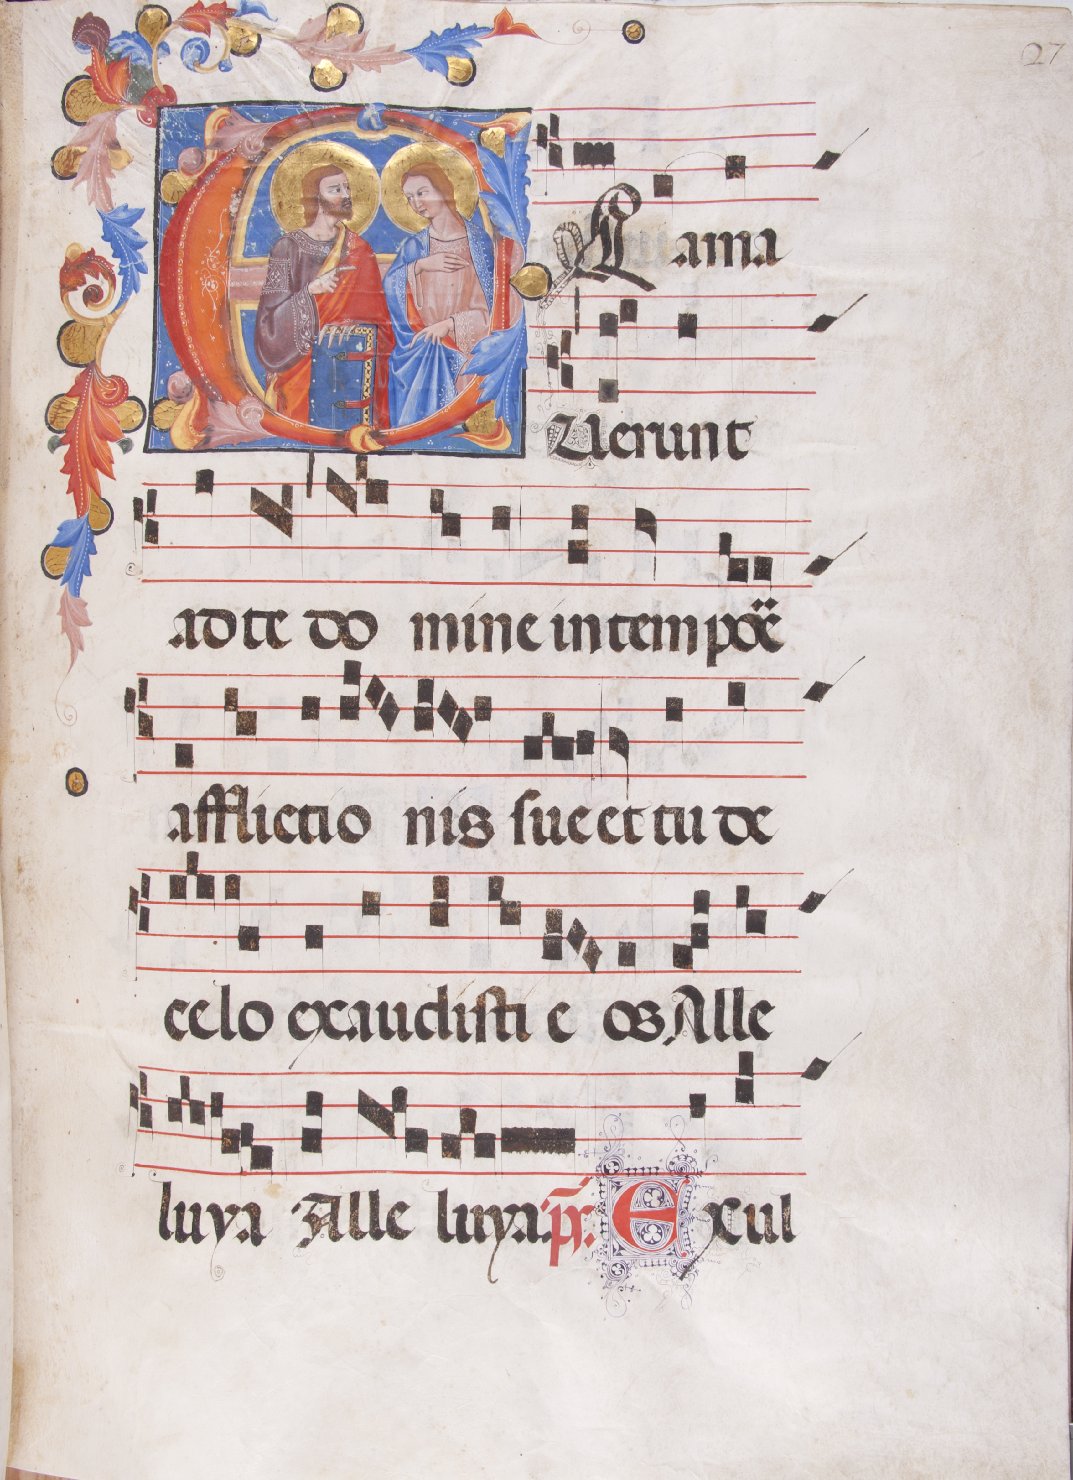 27
EXclama
Uerunt
ad te do mine in tempore
afflictio nis sue et tu de
celo exaudisti e os Alle
luya Alle luya. ps. Exul